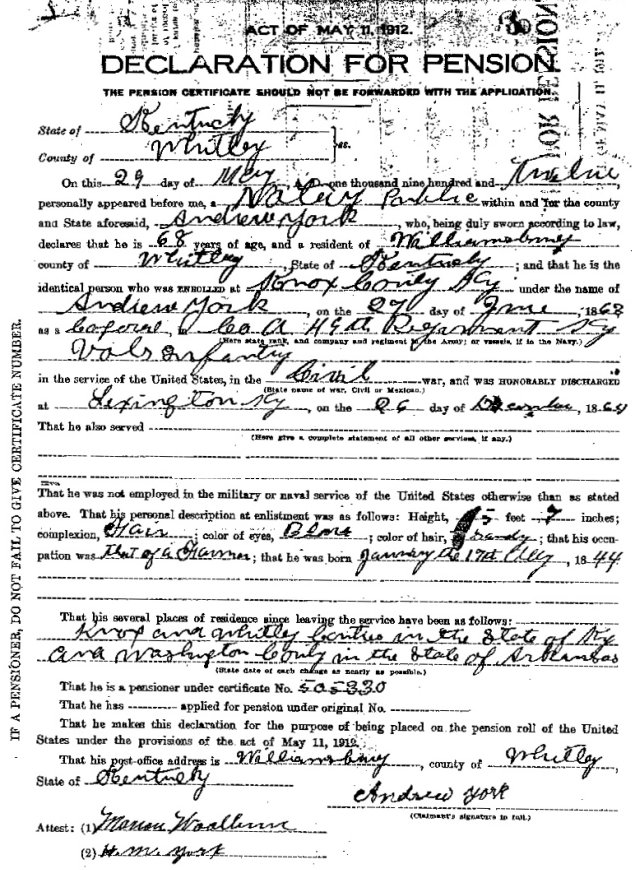 ACT OF MAY 11, 1912.
DECLARATION FOR PENSION
THE PENSION CERTIFICATE SHOULD NOT BE FORWARDED WITH THE APPLICATION.
State of Kentucky
County of Whitley } ss.
On this 29 day of May, A. D. one thousand nine hundred and Twelve
personally appeared before me, a Notary Public within and for the county
and State aforesaid, Andrew York, who, being duly sworn according to law,
declares that he is 68 years of age, and a resident of Williamsburg
county of Whitley, State of Kentucky; and that he is the
identical person who was ENROLLED at Knox County Ky under the name of
Andrew York, on the 27 day of June, 1863
as a Corporal, Co A Regiment Ky
(Here state rank, and company and regiment in the Army; or vessels, if in the Navy.)
Vols Infantry
in the service of the United States, in the Civil war, and was HONORABLY DISCHARGED
(State name of war, Civil or Mexican.)
at Lexington Ky, on the 26 day of December, 1864
That he also served
(Here give a complete statement of all other services, if any.)
That he was not employed in the military or naval service of the United States otherwise than as stated
above. That his personal description at enlistment was as follows: Height, 5 feet 7 inches;
complexion, Fair; color of eyes, Blue; color of hair, Sandy; that his occu-
pation was that of a Farmer; that he was born January the 17th, 1844
That his several places of residence since leaving the service have been as follows:
Knox and Whitley Counties in the State of Ky
and Washington County in the State of Arkansas
(State date of each change as nearly as possible.)
That he is a pensioner under certificate No. 505330
That he has applied for pension under original No.
That he makes this declaration for the purpose of being placed on the pension roll of the United
States under the provisions of the act of May 11, 1912.
That his post-office address is Williamsburg, county of Whitley,
State of Kentucky
Andrew York
(Claimant's signature in full.)
Attest: (1)
(2) H. M. York
IF A PENSIONER, DO NOT FAIL TO GIVE CERTIFICATE NUMBER.
FOR PENSION